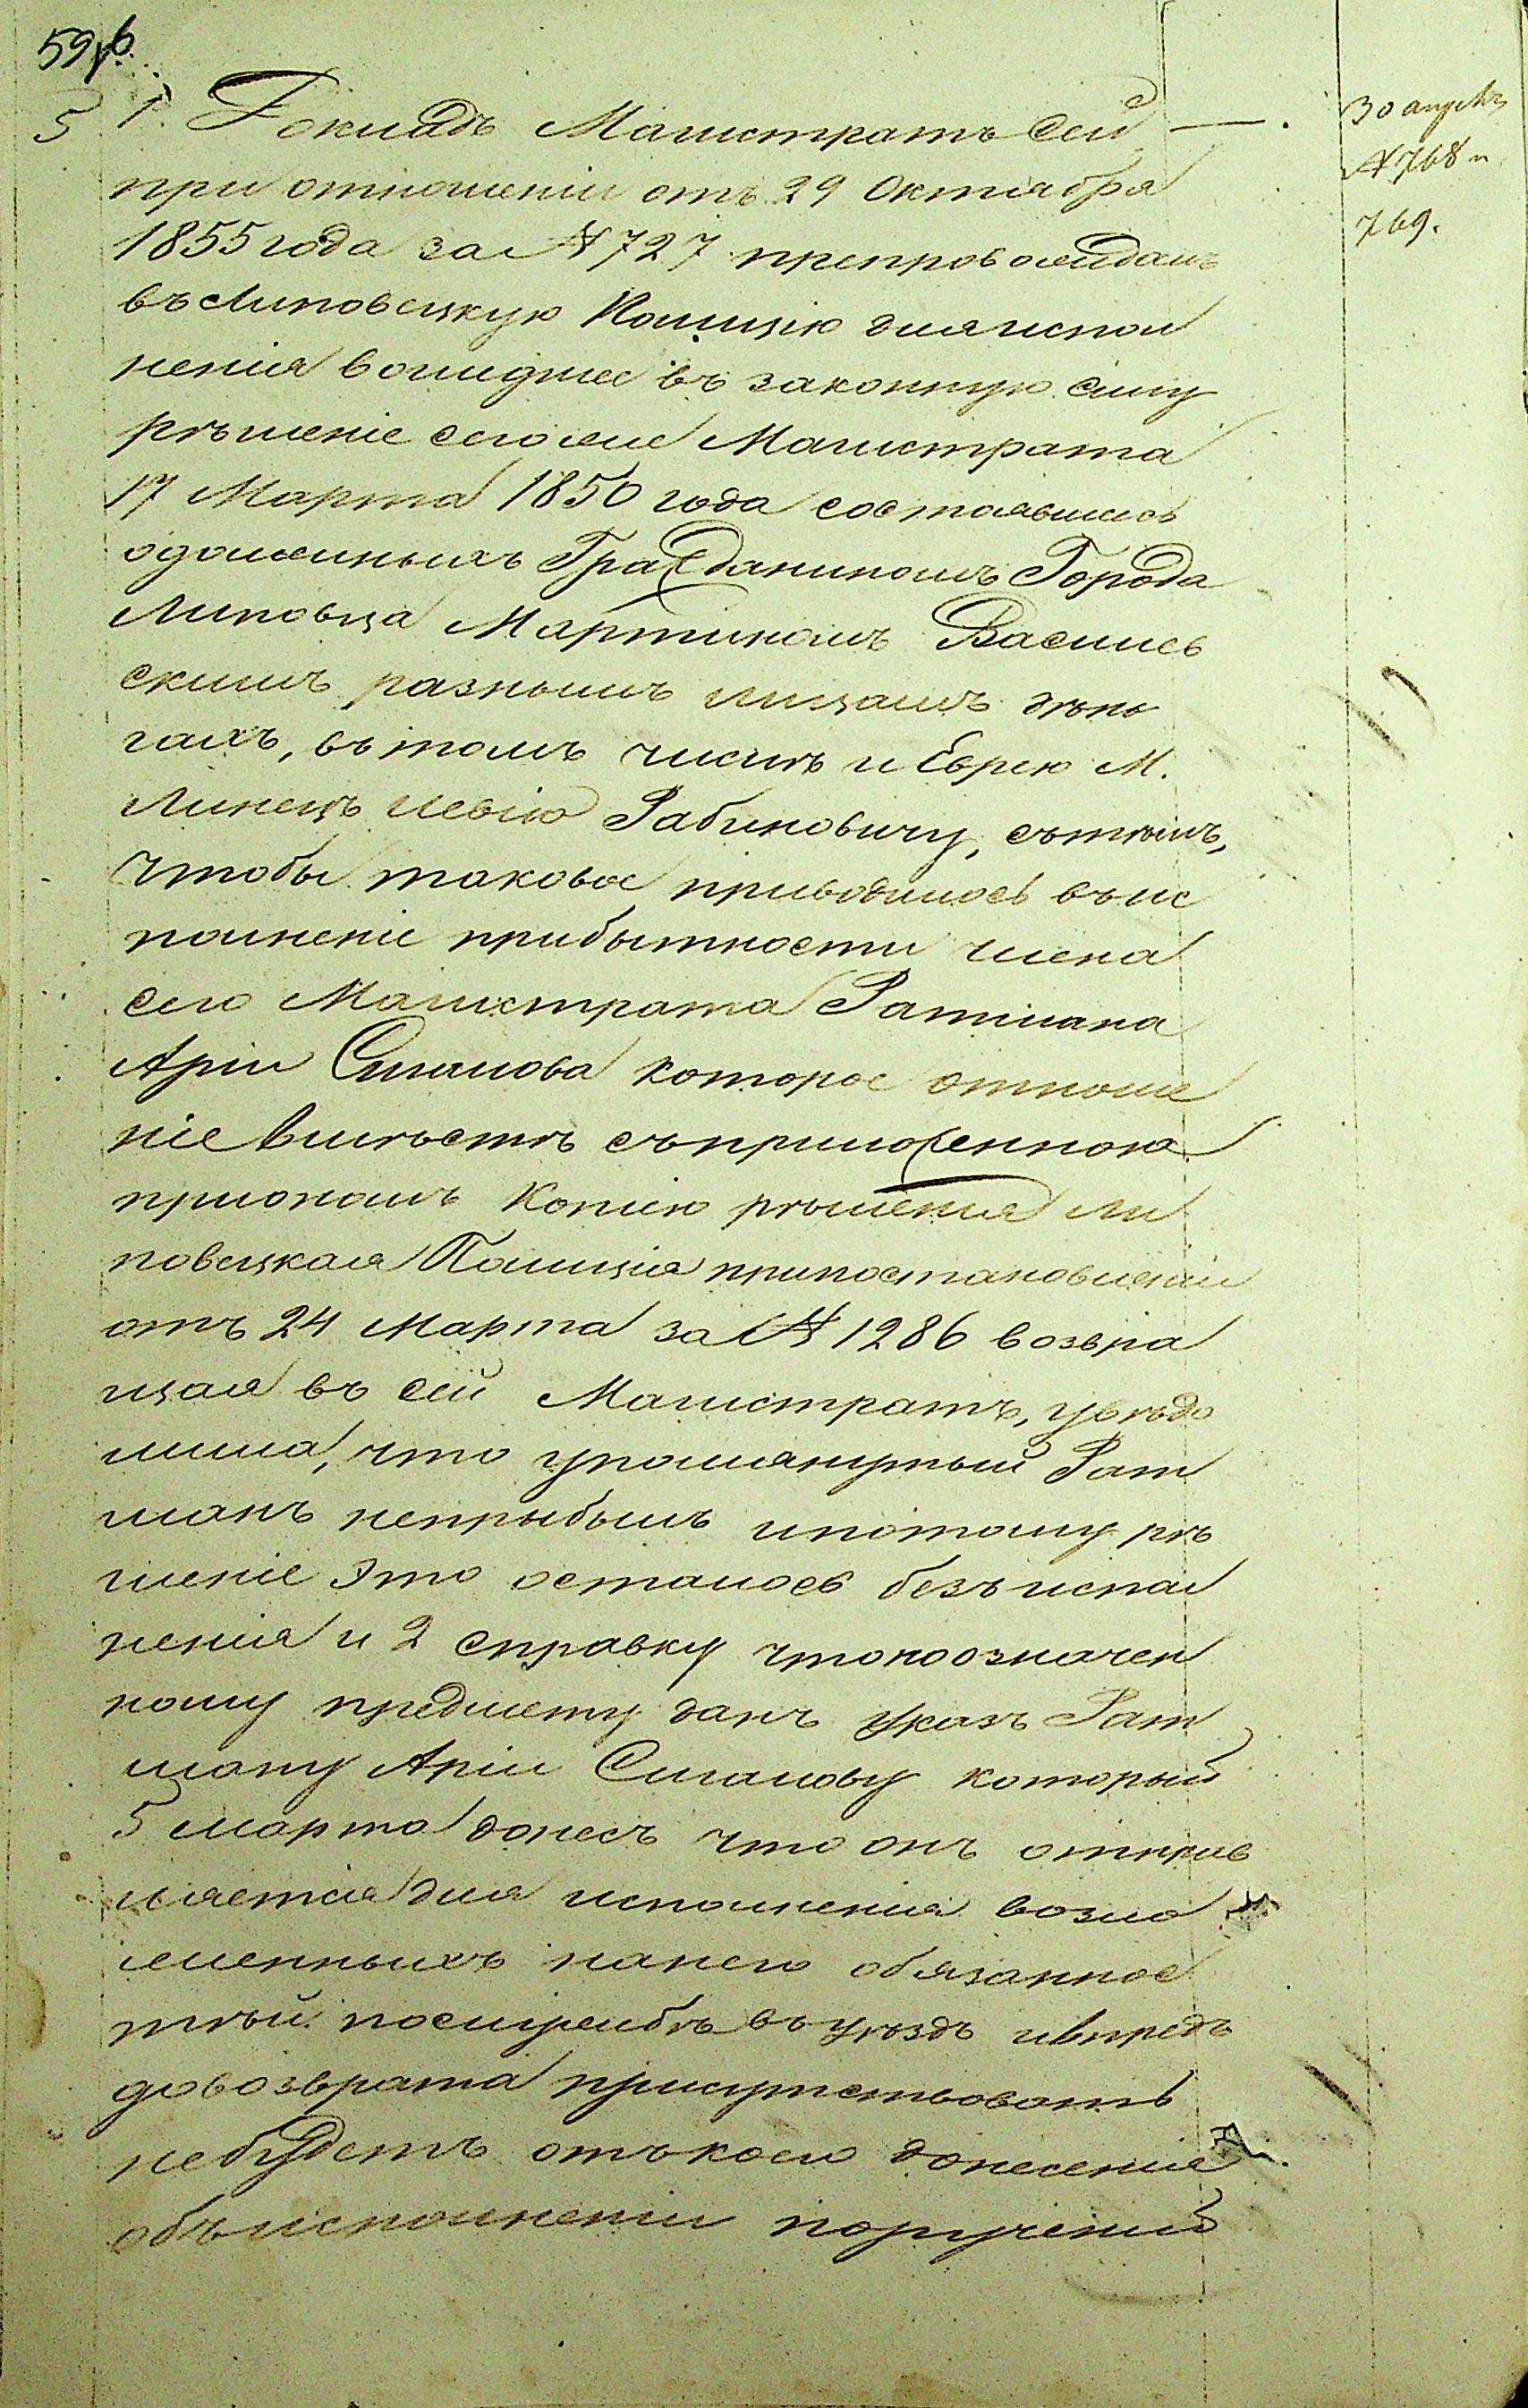 59 об.
5 1. Докладъ Магистратъ сей —.
30 апрѣля
№ 768 и
769.
при отношеніи отъ 29 Октября
1855 года за № 727 препровождалъ
въ Липовецкую Полицію для испол
ненія вошедшее въ законную силу
рѣшеніе сего же Магистрата
17 Марта 1850 года состоявшиесь
одолженныхъ Гражданиномъ Города
Липовца Мартиномъ Василев
скимъ разнымъ лицамъ день
гахъ, въ томъ числѣ и Еврею М.
Линецъ Левію Рабиновичу, сътѣмъ,
чтобы таковое приводилось въ ис
полненіе прибытности члена
сего Магистрата Ратмана
Аріи Сиганова которое отноше
ніе вмѣстѣ съприложенною
приономъ Копією рѣшенія Ли
повецкая Полиція припостановленіи
отъ 24 Марта за № 1286 возвра
щая въ сей Магистратъ, увѣдо
мила, что упомянутый Рат
манъ неприбылъ ипотому рѣ
шеніе это осталось безъ испол
ненія и 2 справку чтопоозначен
ному предмету данъ указъ Рат
ману Аріи Сиганову который
5 марта донесъ что онъ отправ
ляется для исполненія возло
женныхъ нанего обязаннос
тѣй послужбѣ въ уѣздъ ивпредь
довозврата присутствовать
небудетъ отъкоего донесенія
обънсполненіи порученій